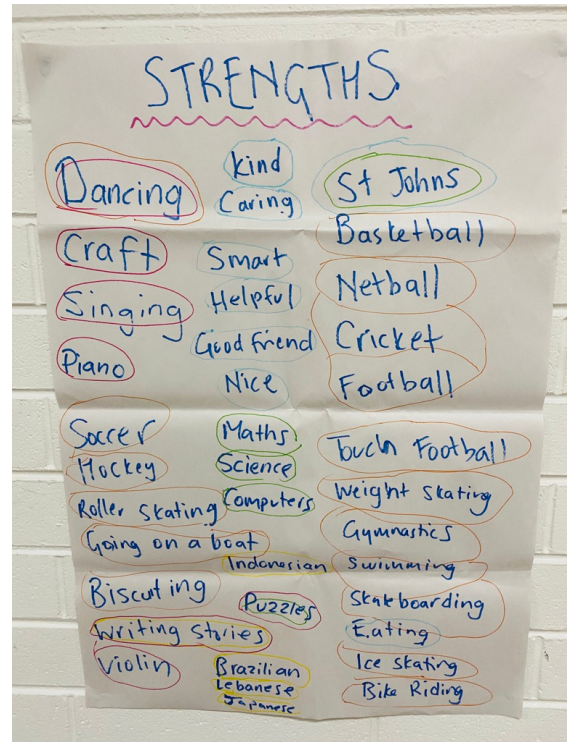 STRENGTHS
Dancing
Craft
Singing
Piano
Soccer
Hockey
Roller Skating
Going on a boat
Biscuting
Writing Stories
Violin
Kind
Caring
Smart
Helpful
Good friend
Nice
Maths
Science
Computers
Indonesian
Puzzles
Brazilian
Lebanese
Japanese
St Johns
Basketball
Netball
Cricket
Football
Touch Football
Weight skating
Gymnastics
Swimming
Skateboarding
Eating
Ice skating
Bike Riding